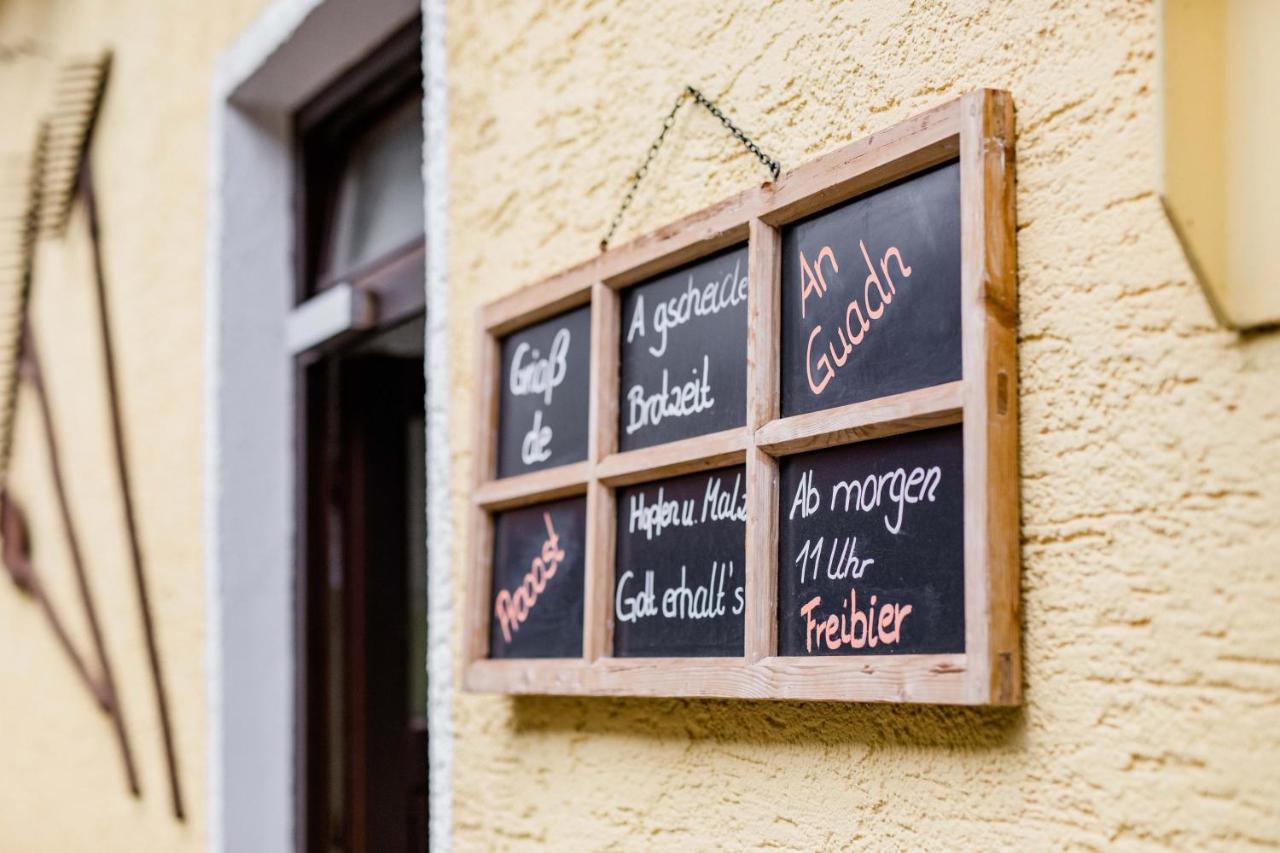 Griaß
de
A gscheide
Brotzeit
An
Guadn
Prooost
Hopfen u. Malz
Gott erhalt's
Ab morgen
11 Uhr
Freibier